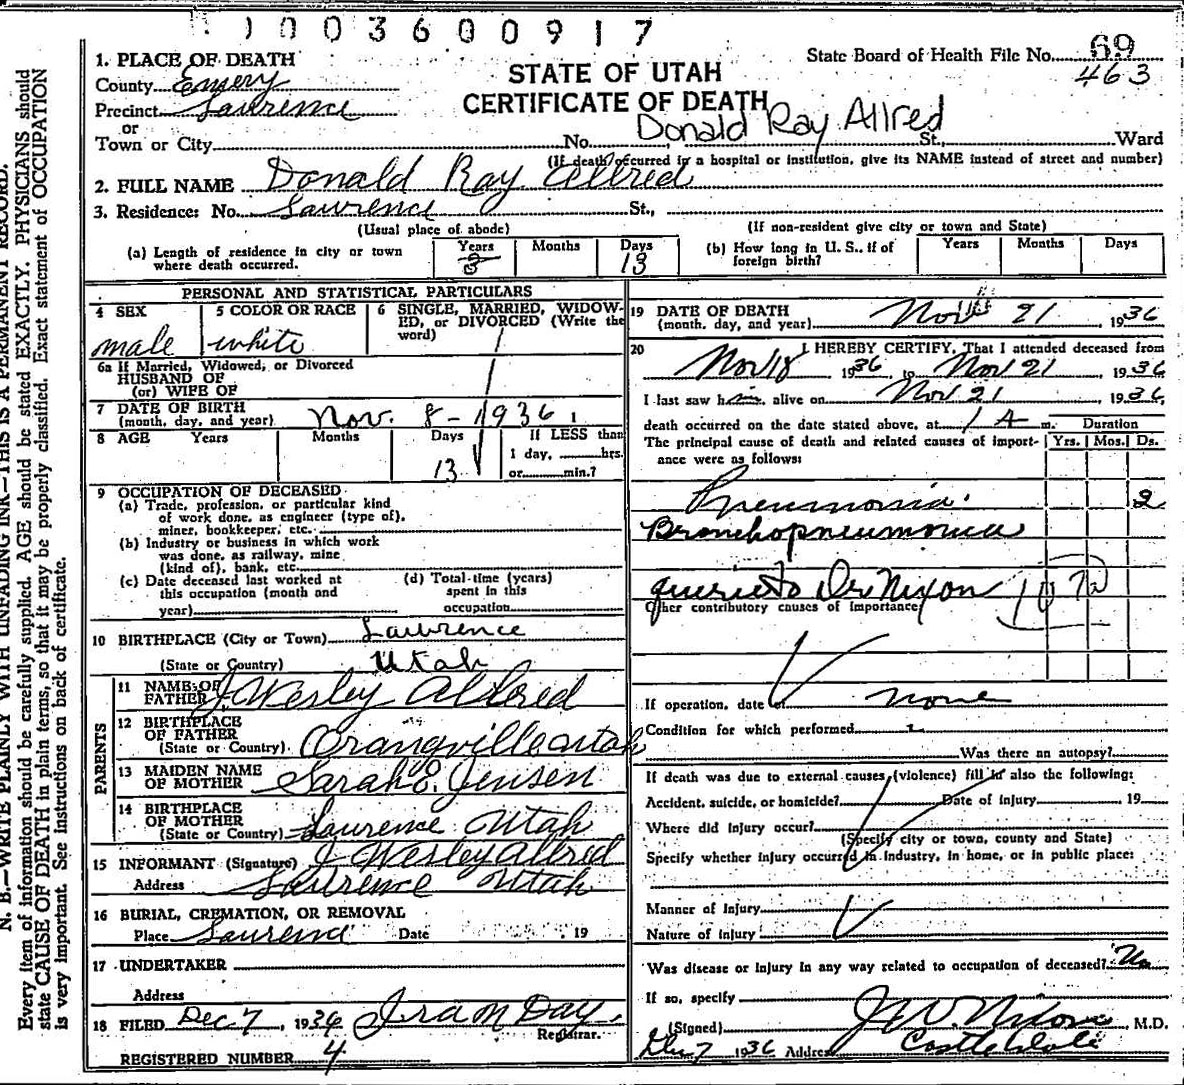 1003600917
State Board of Health File No. 69
463
1. PLACE OF DEATH
County Emery
STATE OF UTAH
CERTIFICATE OF DEATH
Precinct Lawrence
or
Donald Ray Allred
Town or City No. St., Ward
(If death occurred in a hospital or institution, give its NAME instead of street and number)
2. FULL NAME Donald Ray Allred
3. Residence: No. Lawrence St.,
(Usual place of abode) (If non-resident give city or town and State)
(a) Length of residence in city or town where death occurred. Years Months Days 13
(b) How long in U. S., if of foreign birth? Years Months Days
PERSONAL AND STATISTICAL PARTICULARS
4 SEX male
5 COLOR OR RACE white
6 SINGLE, MARRIED, WIDOWED, or DIVORCED (Write the word)
6a If Married, Widowed, or Divorced
HUSBAND OF
(or) WIFE OF
7 DATE OF BIRTH
(month, day, and year) Nov. 8-1936
8 AGE Years Months Days 13
If LESS than
1 day, hrs.
or min.?
9 OCCUPATION OF DECEASED
(a) Trade, profession, or particular kind
of work done, as engineer (type of),
miner, bookkeeper, etc.
(b) Industry or business in which work
was done, as railway, mine
(kind of), bank, etc.
(c) Date deceased last worked at
this occupation (month and
year)
(d) Total time (years)
spent in this
occupation
10 BIRTHPLACE (City or Town) Lawrence
(State or Country) Utah
PARENTS
11 NAME OF
FATHER J. Wesley Allred
12 BIRTHPLACE
OF FATHER
(State or Country) Orangville Utah
13 MAIDEN NAME
OF MOTHER Sarah E. Jensen
14 BIRTHPLACE
OF MOTHER
(State or Country) Lawrence Utah
15 INFORMANT (Signature) J Wesley Allred
Address Lawrence Utah
16 BURIAL, CREMATION, OR REMOVAL
Place Lawrence Date 19
17 UNDERTAKER
Address
18 FILED Dec 7, 1936 Ira M Day
Registrar.
REGISTERED NUMBER 4
19 DATE OF DEATH
(month, day, and year) Nov 21, 1936
20 I HEREBY CERTIFY, That I attended deceased from
Nov 18 1936, to Nov 21, 1936
I last saw him alive on Nov 21 1936,
death occurred on the date stated above, at 1 A m. Duration
The principal cause of death and related causes of importance were as follows: Yrs. Mos. Ds.
Pneumonia. 2
Bronchopneumonia
querie to Dr Nixon 107a
Other contributory causes of importance:
If operation, date of none
Condition for which performed
Was there an autopsy?
If death was due to external causes (violence) fill in also the following:
Accident, suicide, or homicide? Date of injury 19
Where did injury occur?
(Specify city or town, county and State)
Specify whether injury occurred in industry, in home, or in public place:
Manner of Injury
Nature of injury
Was disease or injury in any way related to occupation of deceased? No
If so, specify
(Signed) J W Nixon, M.D.
Dec 7 1936 Address Castle Dale
N. B.—WRITE PLAINLY WITH UNFADING INK—THIS IS A PERMANENT RECORD.
Every item of information should be carefully supplied. AGE should be stated EXACTLY. PHYSICIANS should
state CAUSE OF DEATH in plain terms, so that it may be properly classified. Exact statement of OCCUPATION
is very important. See Instructions on back of certificate.